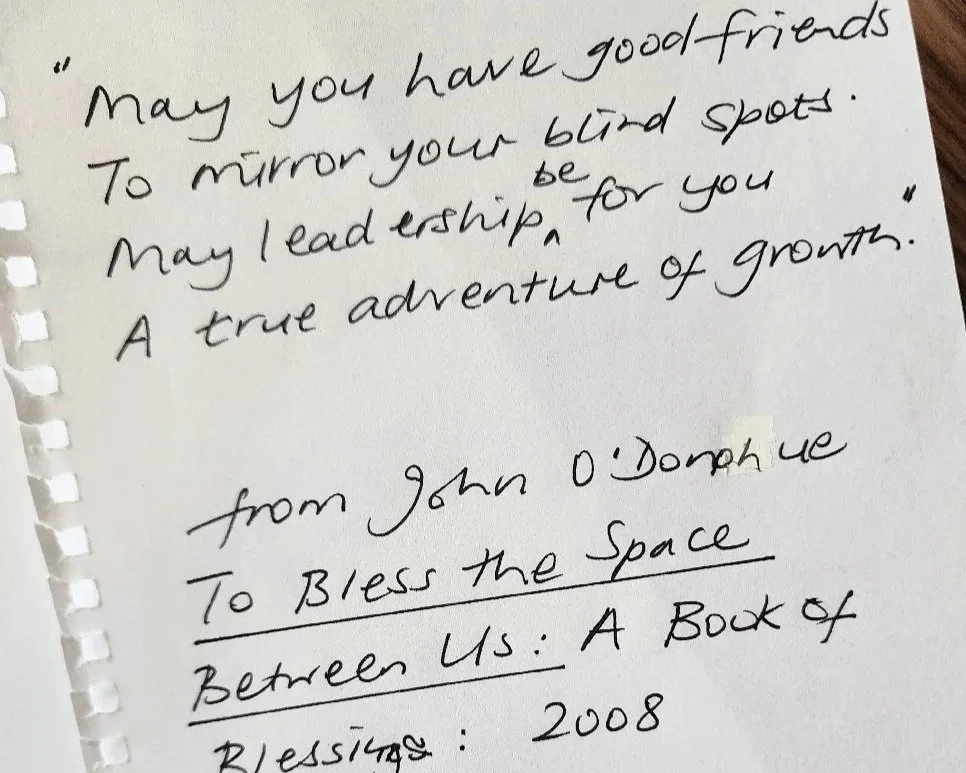 "May you have good friends
To mirror your blind spots.
May leadership be for you
A true adventure of growth."
from John O'Donohue
To Bless the Space
Between Us: A Book of
Blessings: 2008